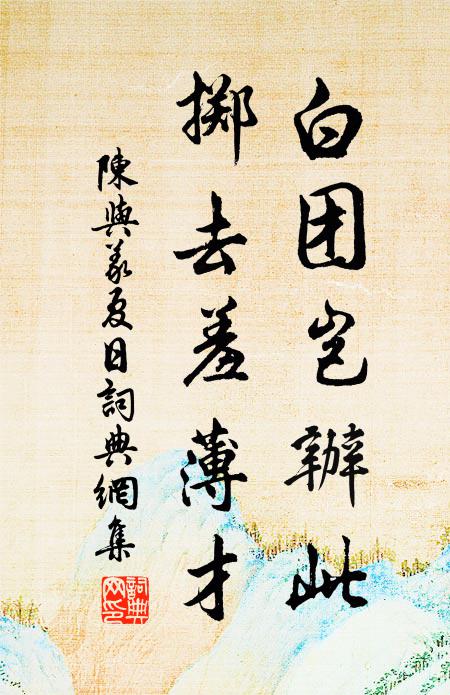 白团岂辦此
擲去羞薄才
陳與義夏日詞典網集
詞典网印